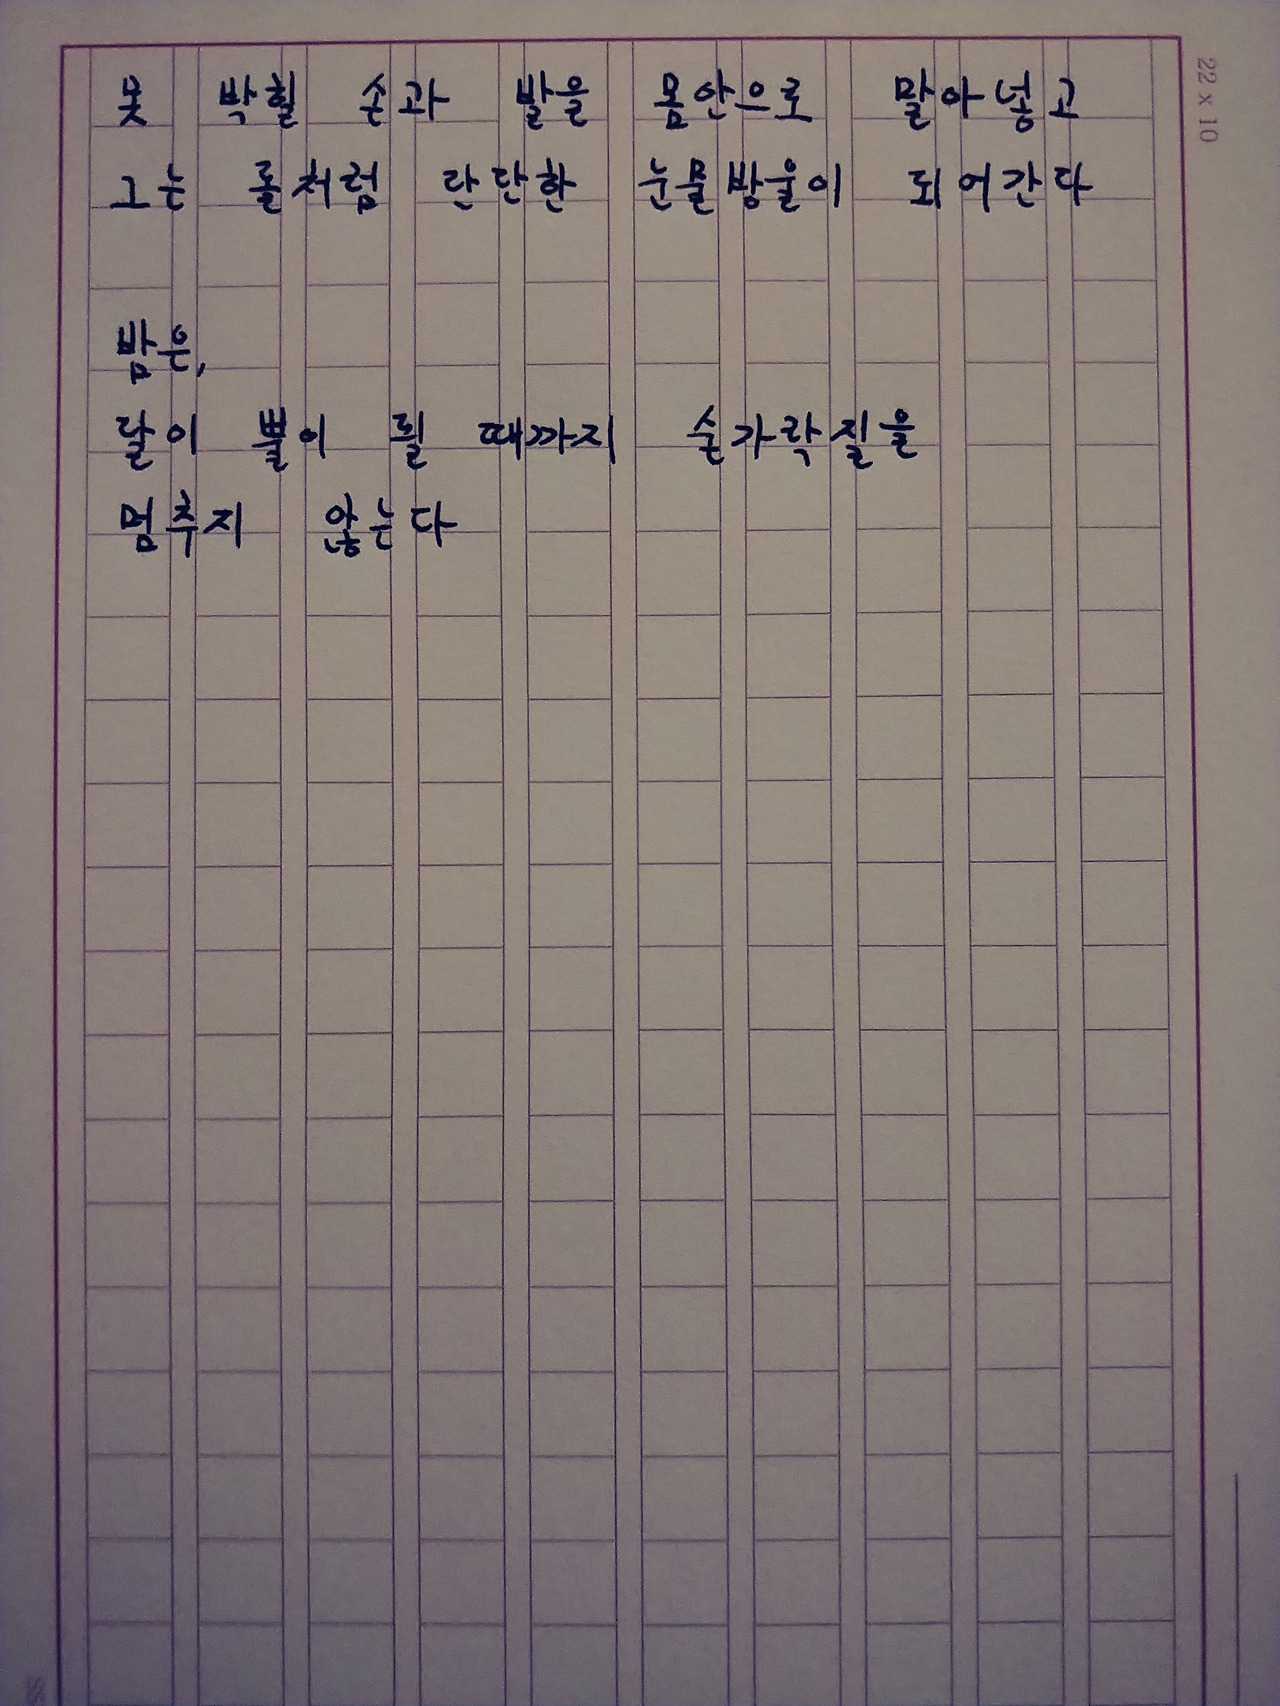 못 박힐 손과 발을 몸안으로 말아넣고
그는 돌처럼 단단한 눈물방울이 되어간다
밤은,
달이 뿔이 될 때까지 숟가락질을
멈추지 않는다
22 x 10